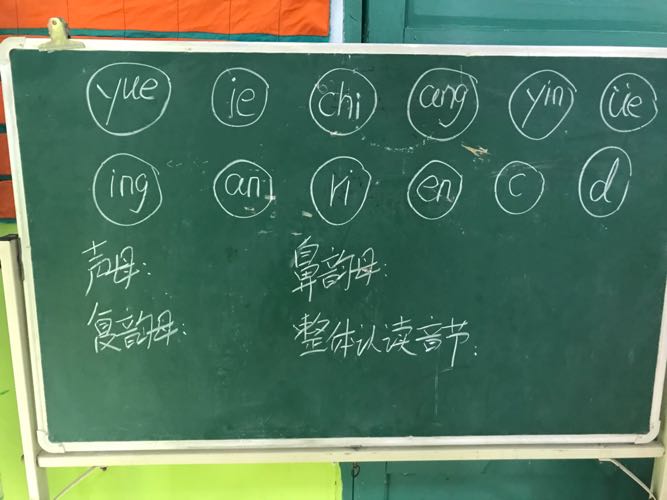 yue ie chi ang yin üe
ing an ri en c d
声母： 鼻韵母：
复韵母： 整体认读音节：